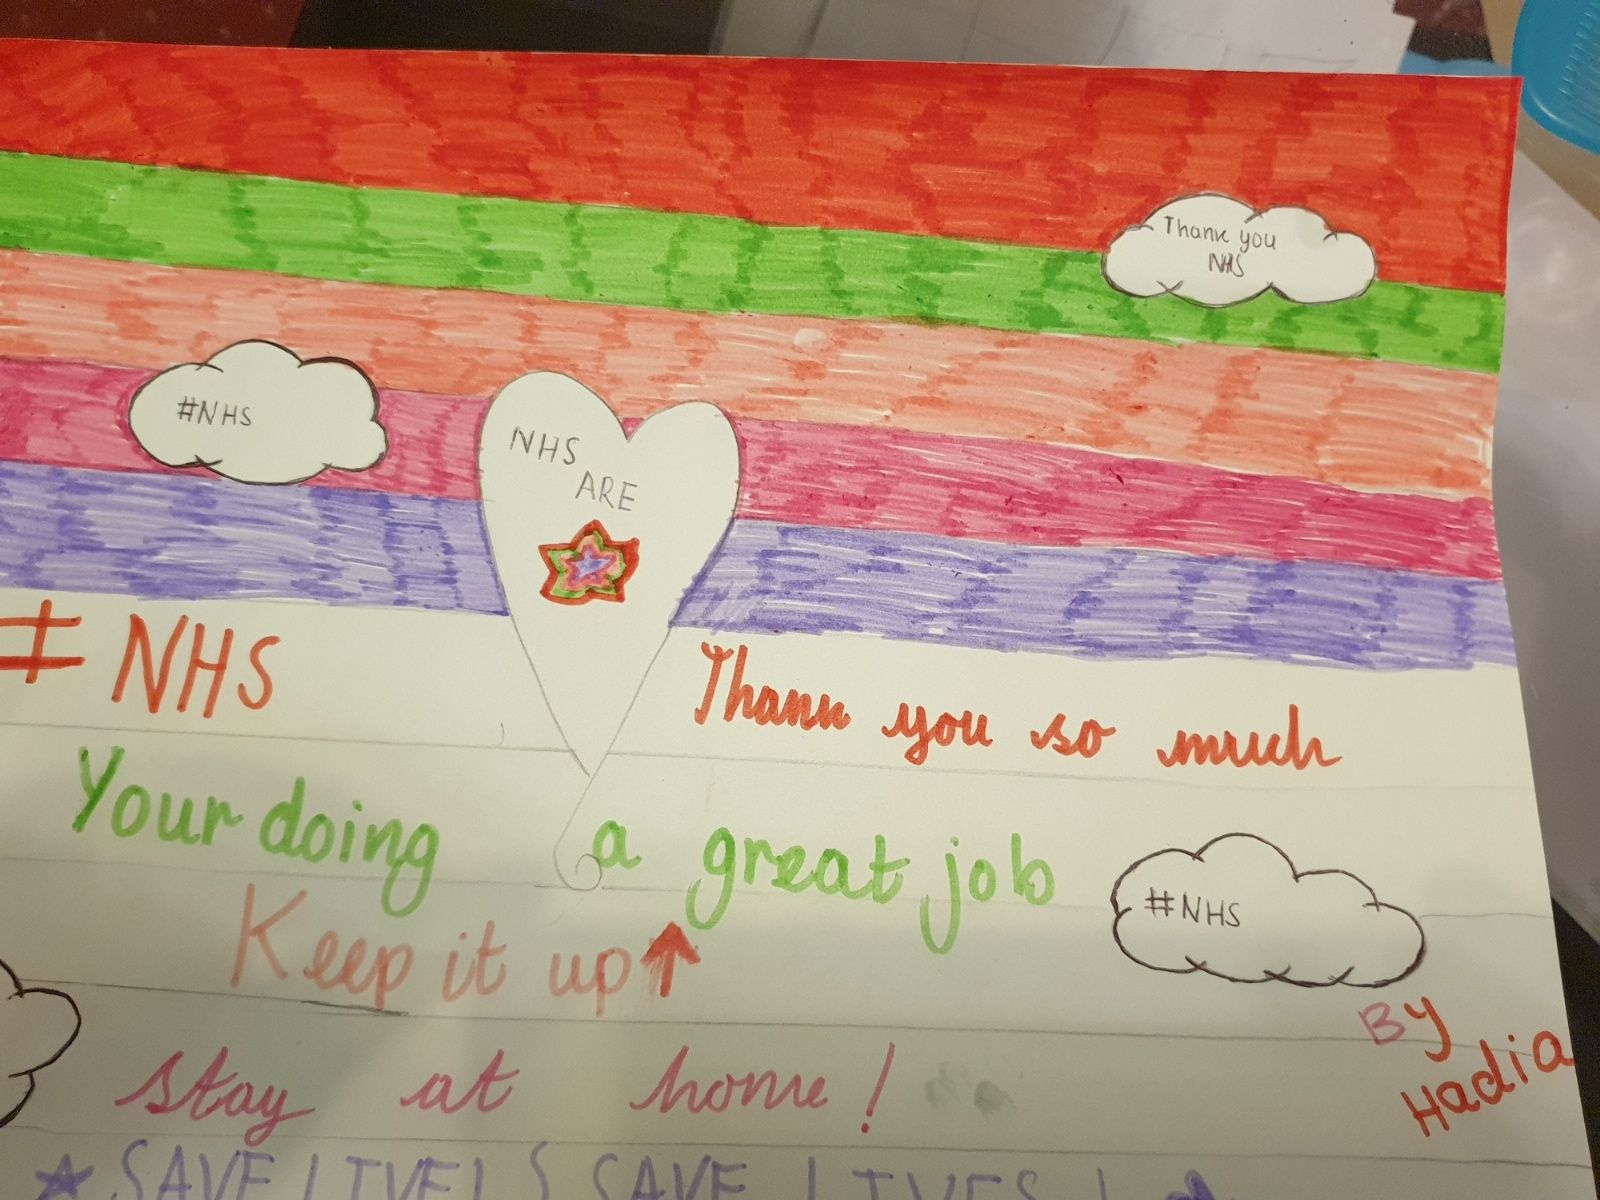 Thank you
NHS
#NHS
NHS
ARE
# NHS
Thank you so much
Your doing a great job
#NHS
Keep it up
By
Hadia
stay at home!
SAVE LIVES SAVE LIVES !